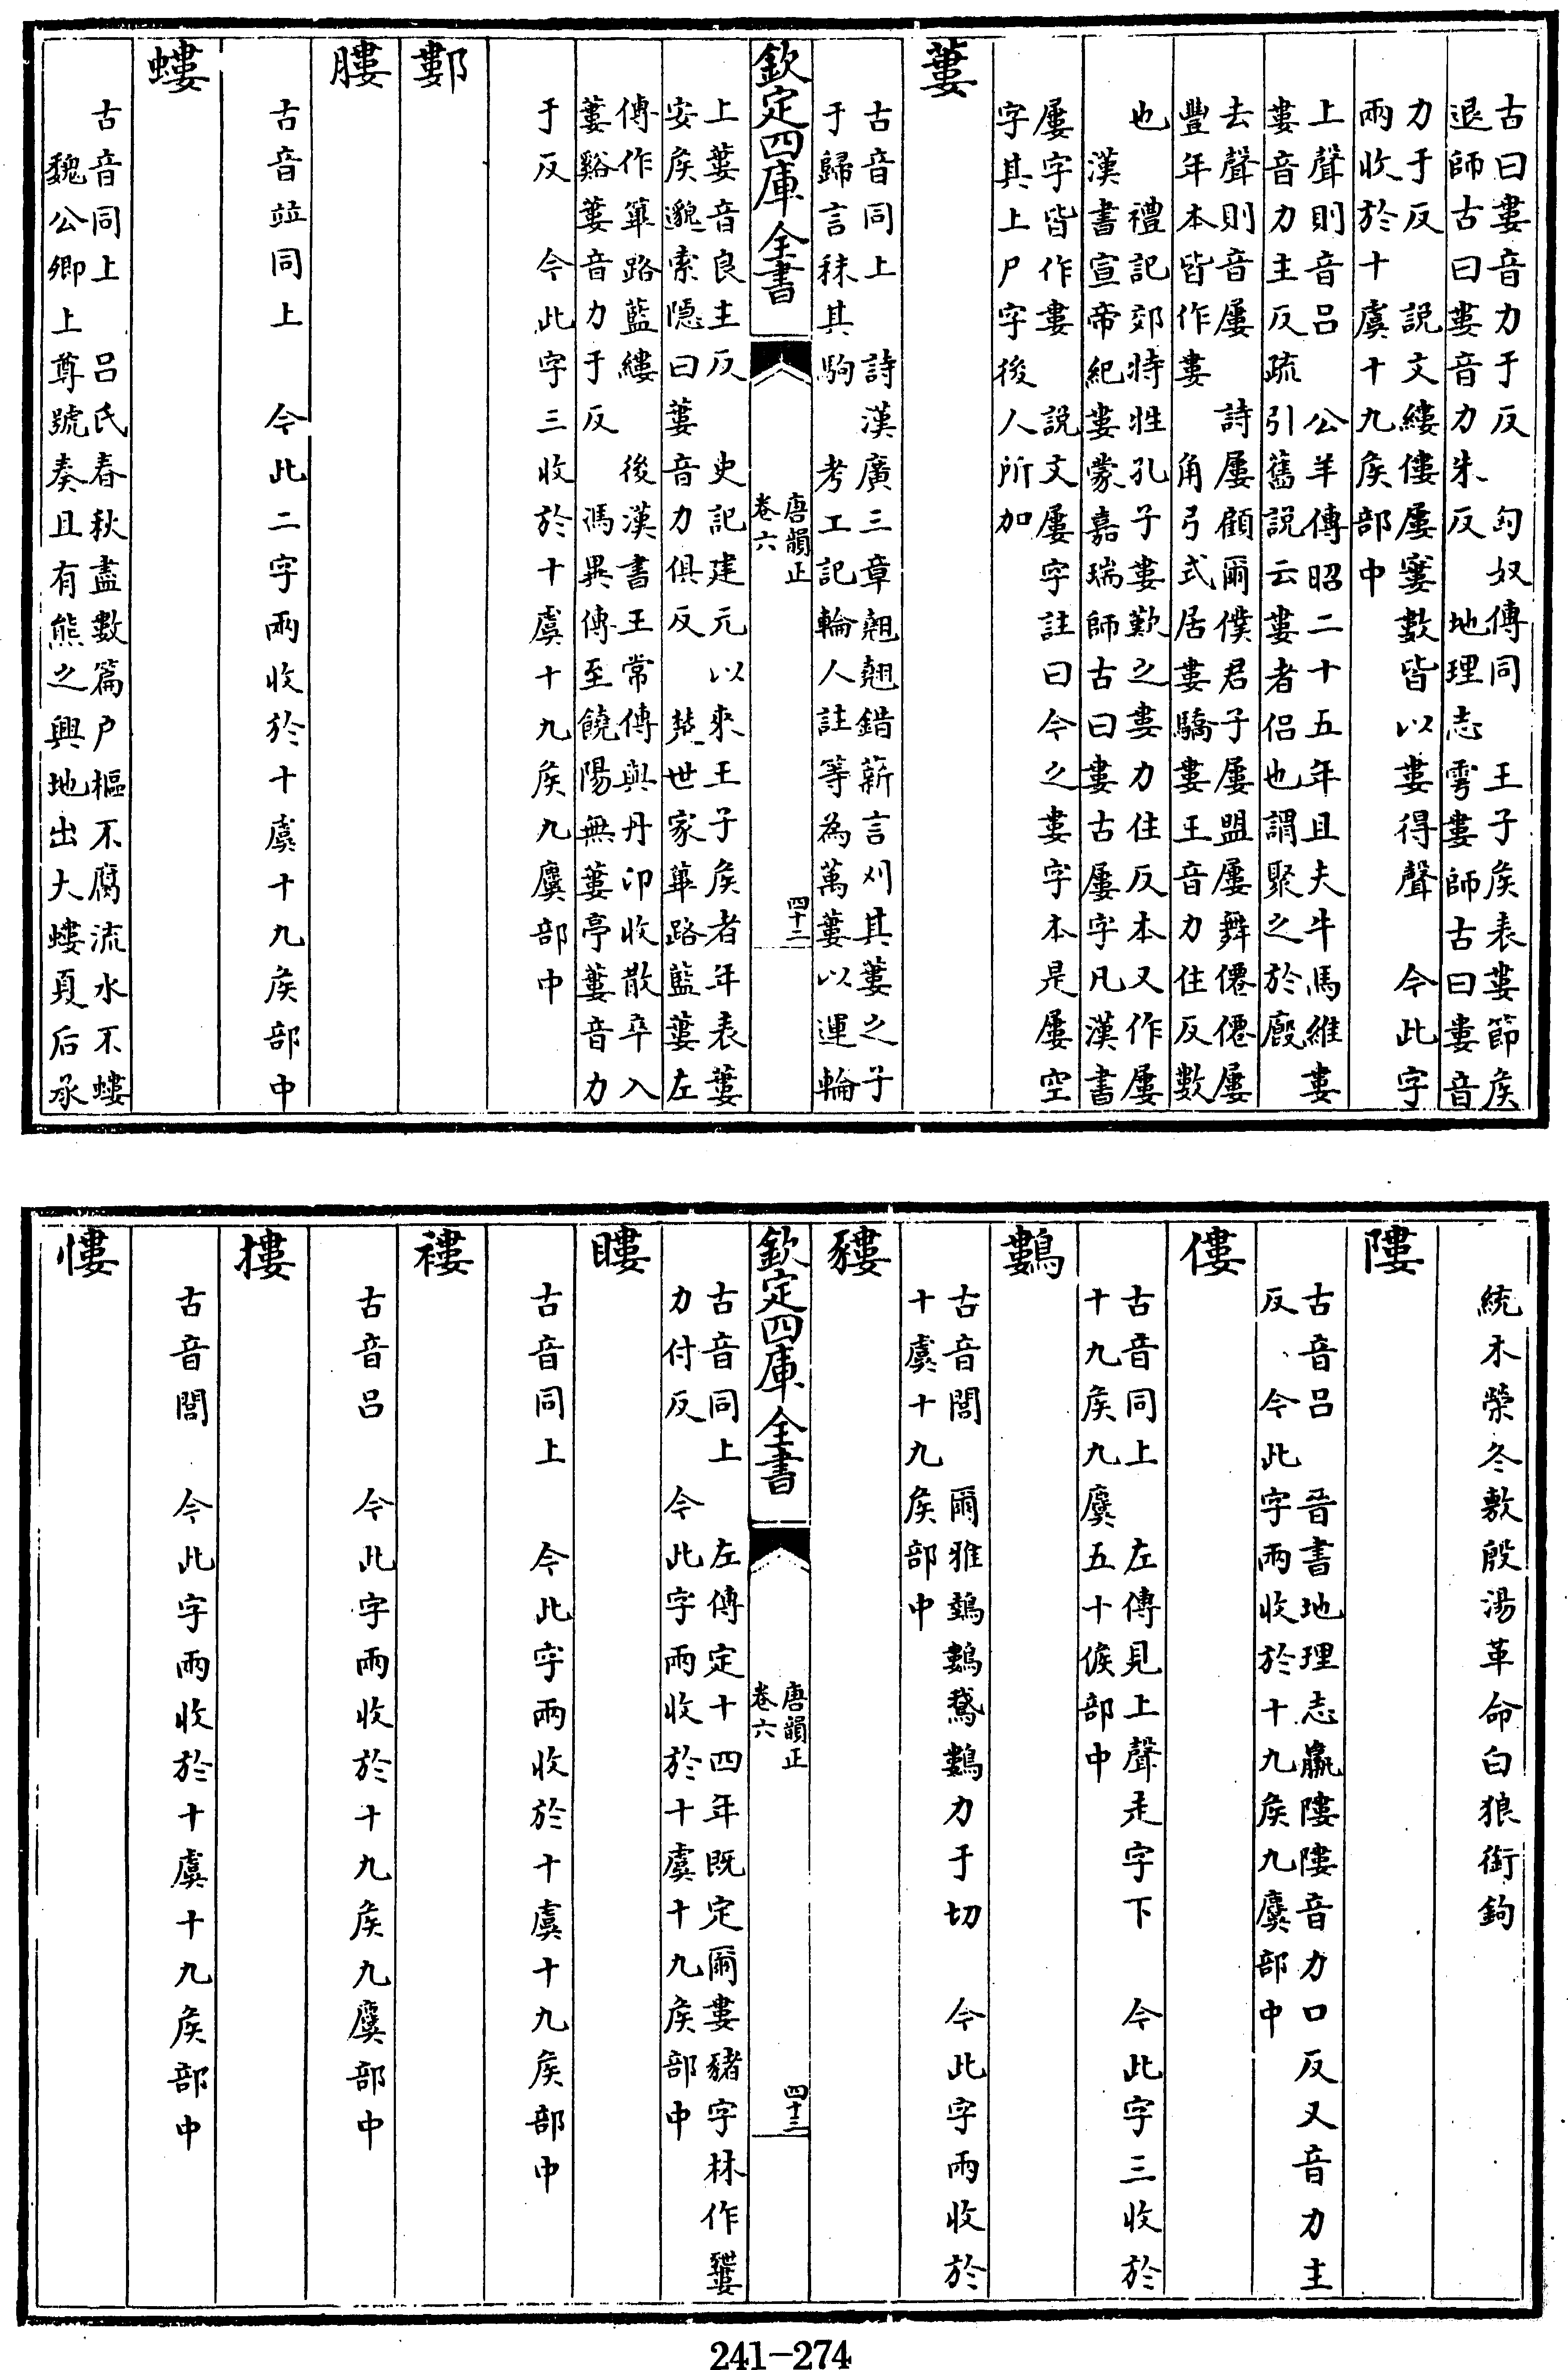 古曰婁音力于反　匈奴傳同　王子侯表婁節侯
退師古曰婁音力朱反　地理志雩婁師古曰婁音
力于反　說文縷僂屢窶數皆以婁得聲　今此字
兩收於十虞十九侯部中
上聲則音呂　公羊傳昭二十五年且夫牛馬維婁
婁音力主反疏引舊說云婁者侶也謂聚之於廄
去聲則音屢　詩屢顧爾僕君子屢盟屢舞僊僊屢
豐年本皆作婁　角弓式居婁驕婁王音力住反數
也　禮記郊特牲孔子婁歎之婁力住反本又作屢
漢書宣帝紀婁蒙嘉瑞師古曰婁古屢字凡漢書
屢字皆作婁　說文屢字註曰今之婁字本是屢空
字其上尸字後人所加
蔞
古音同上　詩漢廣三章翹翹錯薪言刈其蔞之子
于歸言秣其駒　考工記輪人註等為萬蔞以運輪
欽定四庫全書
唐韻正
卷六
四十二
上蔞音良主反　史記建元以來王子侯者年表蔞
安侯邈索隱曰蔞音力俱反　楚世家蓽路藍蔞左
傳作篳路藍縷　後漢書王常傳與丹卬收散卒入
蔞谿蔞音力于反　馮異傳至饒陽無蔞亭蔞音力
于反　今此字三收於十虞十九侯九麌部中
鄻
膢
古音竝同上　今此二字兩收於十虞十九侯部中
螻
古音同上　呂氏春秋盡數篇戶樞不腐流水不螻
魏公卿上尊號奏且有熊之興地出大螻夏后承
統木榮冬敷殷湯革命白狼銜鉤
隬
古音呂　晉書地理志羸隬隬音力口反又音力主
反　今此字兩收於十九侯九麌部中
僂
古音同上　左傳見上聲走字下　今此字三收於
十九侯九麌五十候部中
鷜
古音閭　爾雅鵱鷜鵝鷜力于切　今此字兩收於
十虞十九侯部中
貗
欽定四庫全書
唐韻正
卷六
四十三
古音同上　左傳定十四年既定爾婁豬字林作䝏
力付反　今此字兩收於十虞十九侯部中
瞜
古音同上　今此字兩收於十虞十九侯部中
褸
古音呂　今此字兩收於十九侯九麌部中
摟
古音閭　今此字兩收於十虞十九侯部中
慺
241-274